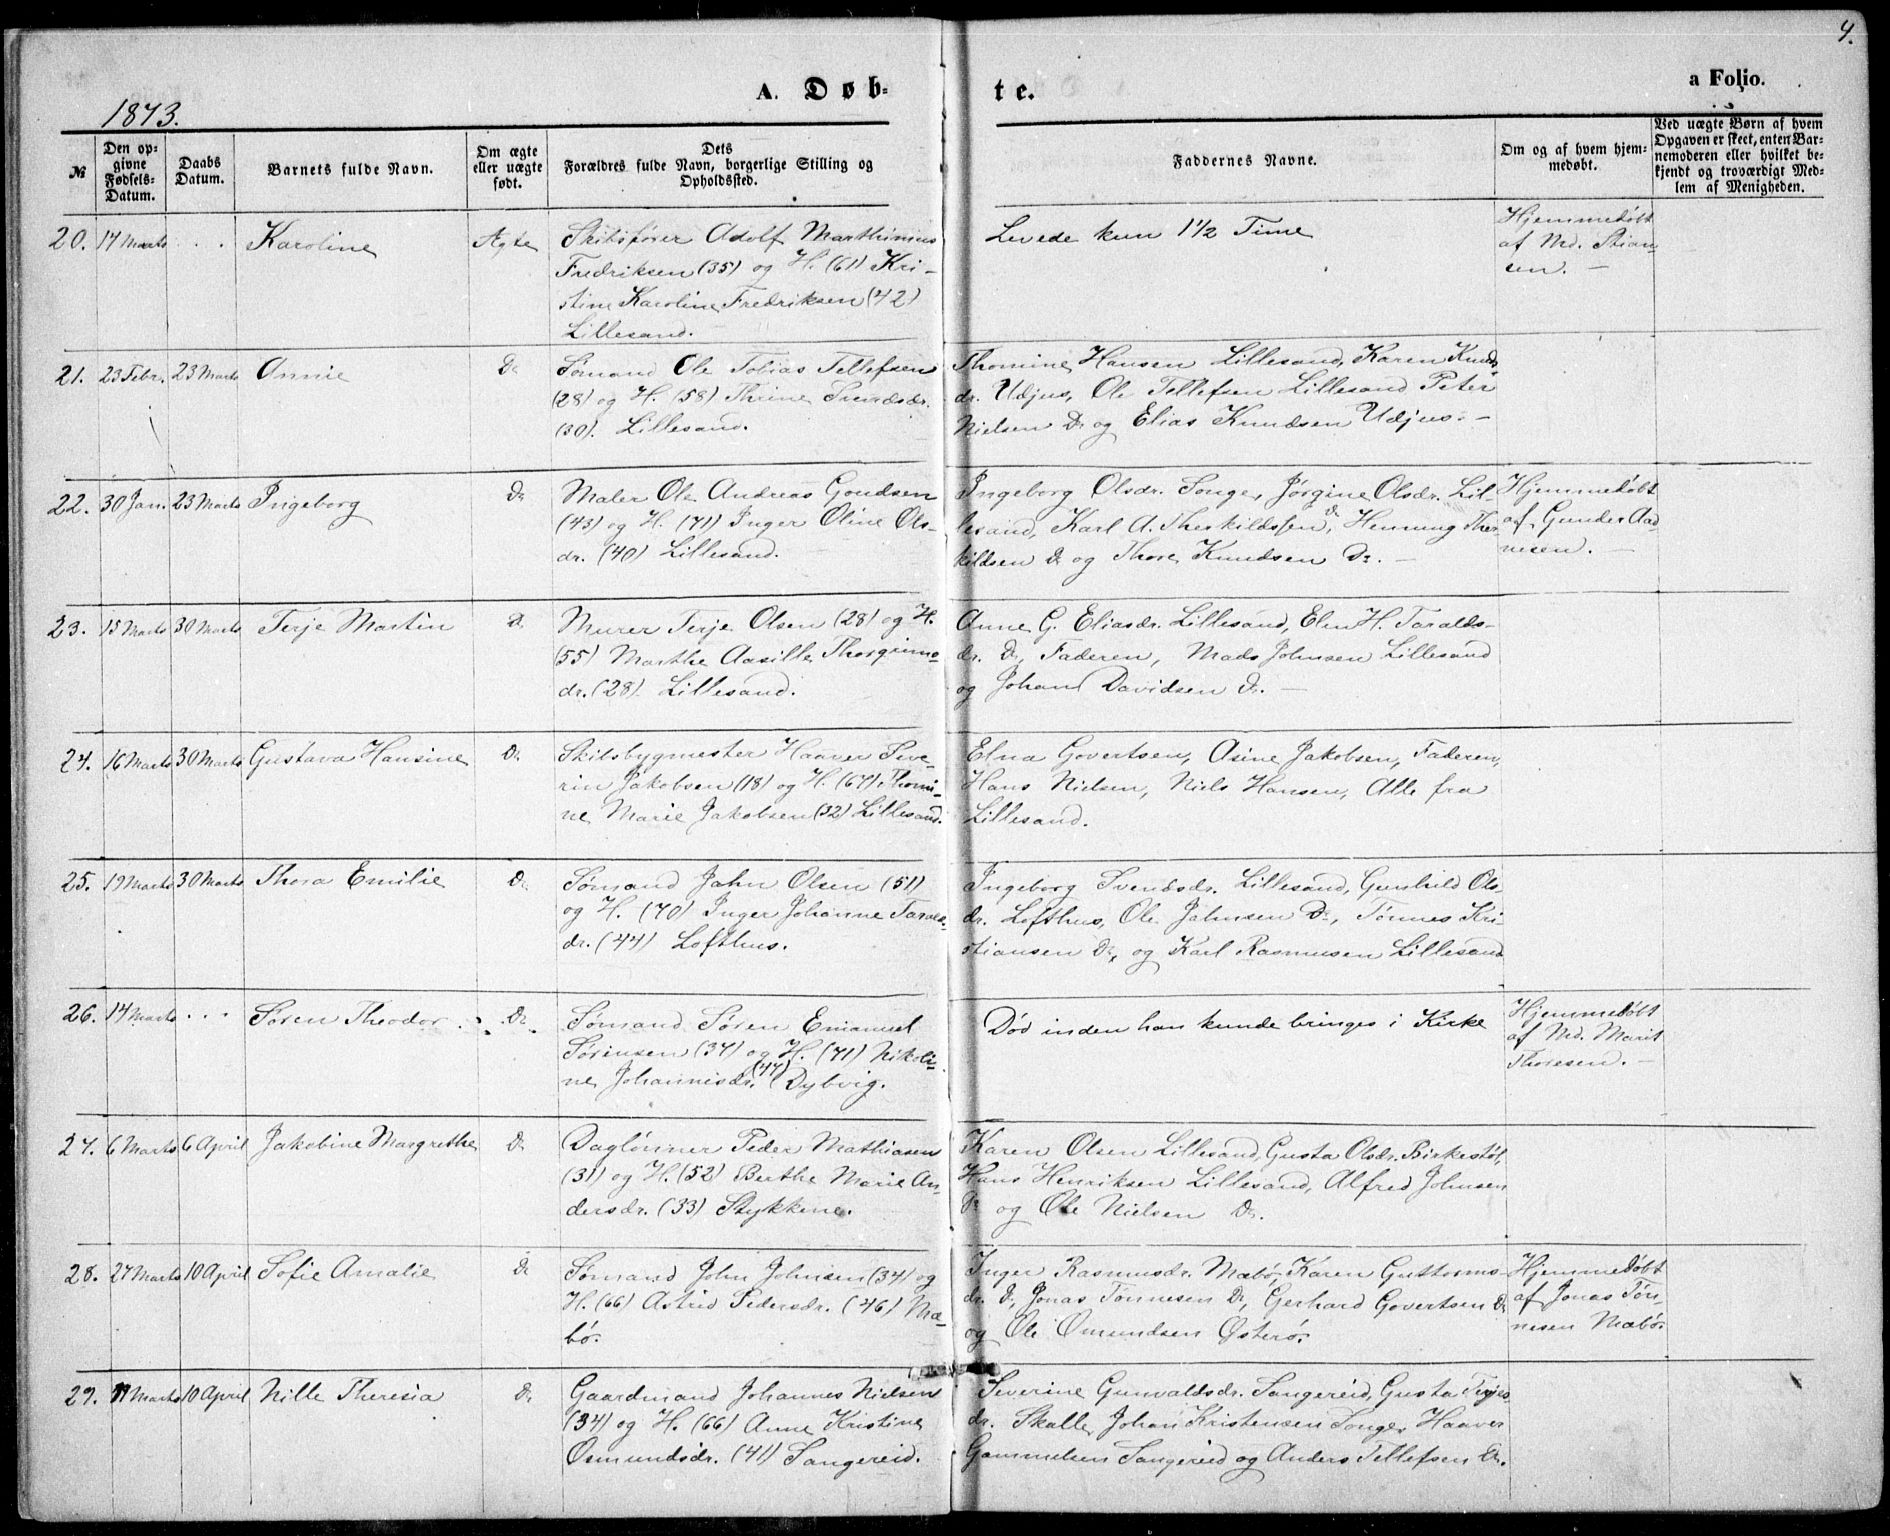 4.
A. Døb-
te.
a Folio.
1873.
№
Den op-
givne
Fødsels-
Datum.
Daabs
Datum.
Barnets fulde Navn.
Om ægte
eller uægte
født.
Dets
Forældres fulde Navn, borgerlige Stilling og
Opholdssted.
Faddernes Navne.
Om og af hvem hjem-
medøbt.
Ved uægte Børn af hvem
Opgaven er skeet, enten Bar-
nemoderen eller hvilket be-
kjendt og troværdigt Med-
lem af Menigheden.
20. 17 Marts . . . Karoline Ægte Skibsfører Adolf Marthinius
Fredriksen (35) og H. (61) Kri-
stine Karoline Fredriksen (42)
Lillesand.
Levede kun 1 1/2 Time
Hjemmedøbt
af Md. Stian-
sen. —
21. 23 Febr. 23 Marts Annie Do Sømand Ole Tobias Tellefsen
(28) og H. (58) Thrine Svendsdr.
(30). Lillesand.
Thomine Hansen Lillesand, Karen Knuds-
dr. Udjus, Ole Tellefsen Lillesand Peter
Nielsen Do og Elias Knudsen Udjus. —
22. 30 Jan. 23 Marts Ingeborg Do Maler Ole Andreas Goudsen
(43) og H. (71) Inger Oline Ols-
dr. (40) Lillesand.
Ingeborg Olsdr. Songe, Jørgine Olsdr. Lil-
lesand, Karl A. Therkildsen Do, Henning Ther-
kildsen Do og Thore Knudsen Do. —
Hjemmedøbt
af Gunder Aad-
nesen. —
23. 15 Marts 30 Marts Terje Martin Do Murer Terje Olsen (28) og H.
(55) Marthe Aasille Thorgrims-
dr. (28) Lillesand.
Anne G. Eliasdr. Lillesand, Elen H. Taralds-
dr. Do, Faderen, Mads Johnsen Lillesand
og Johan Davidsen Do. —
24. 16 Marts 30 Marts Gustava Hansine Do Skibsbygmester Haaver Seve-
rin Jakobsen (18) og H. (67) Thomi-
ne Marie Jakobsen (32) Lillesand.
Elna Govertsen, Asine Jakobsen, Faderen,
Hans Nielsen, Niels Hansen, Alle fra
Lillesand.
25. 19 Marts 30 Marts Thora Emilie Do Sømand John Olsen (51)
og H. (70) Inger Johanne Taralds-
dr. (44) Lofthus.
Ingeborg Svendsdr. Lillesand, Gunhild Ols-
dr. Lofthus, Ole Johnsen Do, Tønnes Kri-
stiansen Do, og Karl Rasmusen Lillesand
26. 14 Marts . . . Søren Theodor Do Sømand Søren Emanuel
Sørensen (37) og H. (71) Nikoli-
ne Johannesdr. (47) Dybvig.
Død inden han kunde bringes i Kirke
Hjemmedøbt
af Md. Marit
Thoresen. —
27. 6 Marts 6 April Jakobine Margrethe Do Daglønner Peder Mathiasen
(31) og H. (52) Berthe Marie An-
dersdr. (33) Stykkene.
Karen Olsen Lillesand, Gusta Olsdr. Birkestøl,
Hans Henriksen Lillesand, Alfred Johnsen
Do og Ole Nielsen Do.
28. 27 Marts 10 April Sofie Amalie Do Sømand John Johnsen (34) og
H. (66) Astrid Pedersdr. (46) Mæ-
bø.
Inger Rasmusdr. Mæbø, Karen Guttorms-
dr. Do, Jonas Tønnesen Do, Gerhard Govertsen Do
og Ole Omundsen Østerø.
Hjemmedøbt
af Jonas Tøn-
nesen Mæbø.
29. 11 Marts 10 April Nille Theresia Do Gaardmand Johannes Nielsen
(34) og H. (66) Anne Kristine
Osmundsdr. (41) Sangereid.
Severine Gunvaldsdr. Sangereid, Gusta Terjes-
dr. Skalle, Johan Kristensen Songe, Haaver
Gommelsen Sangereid og Anders Tellefsen Do.